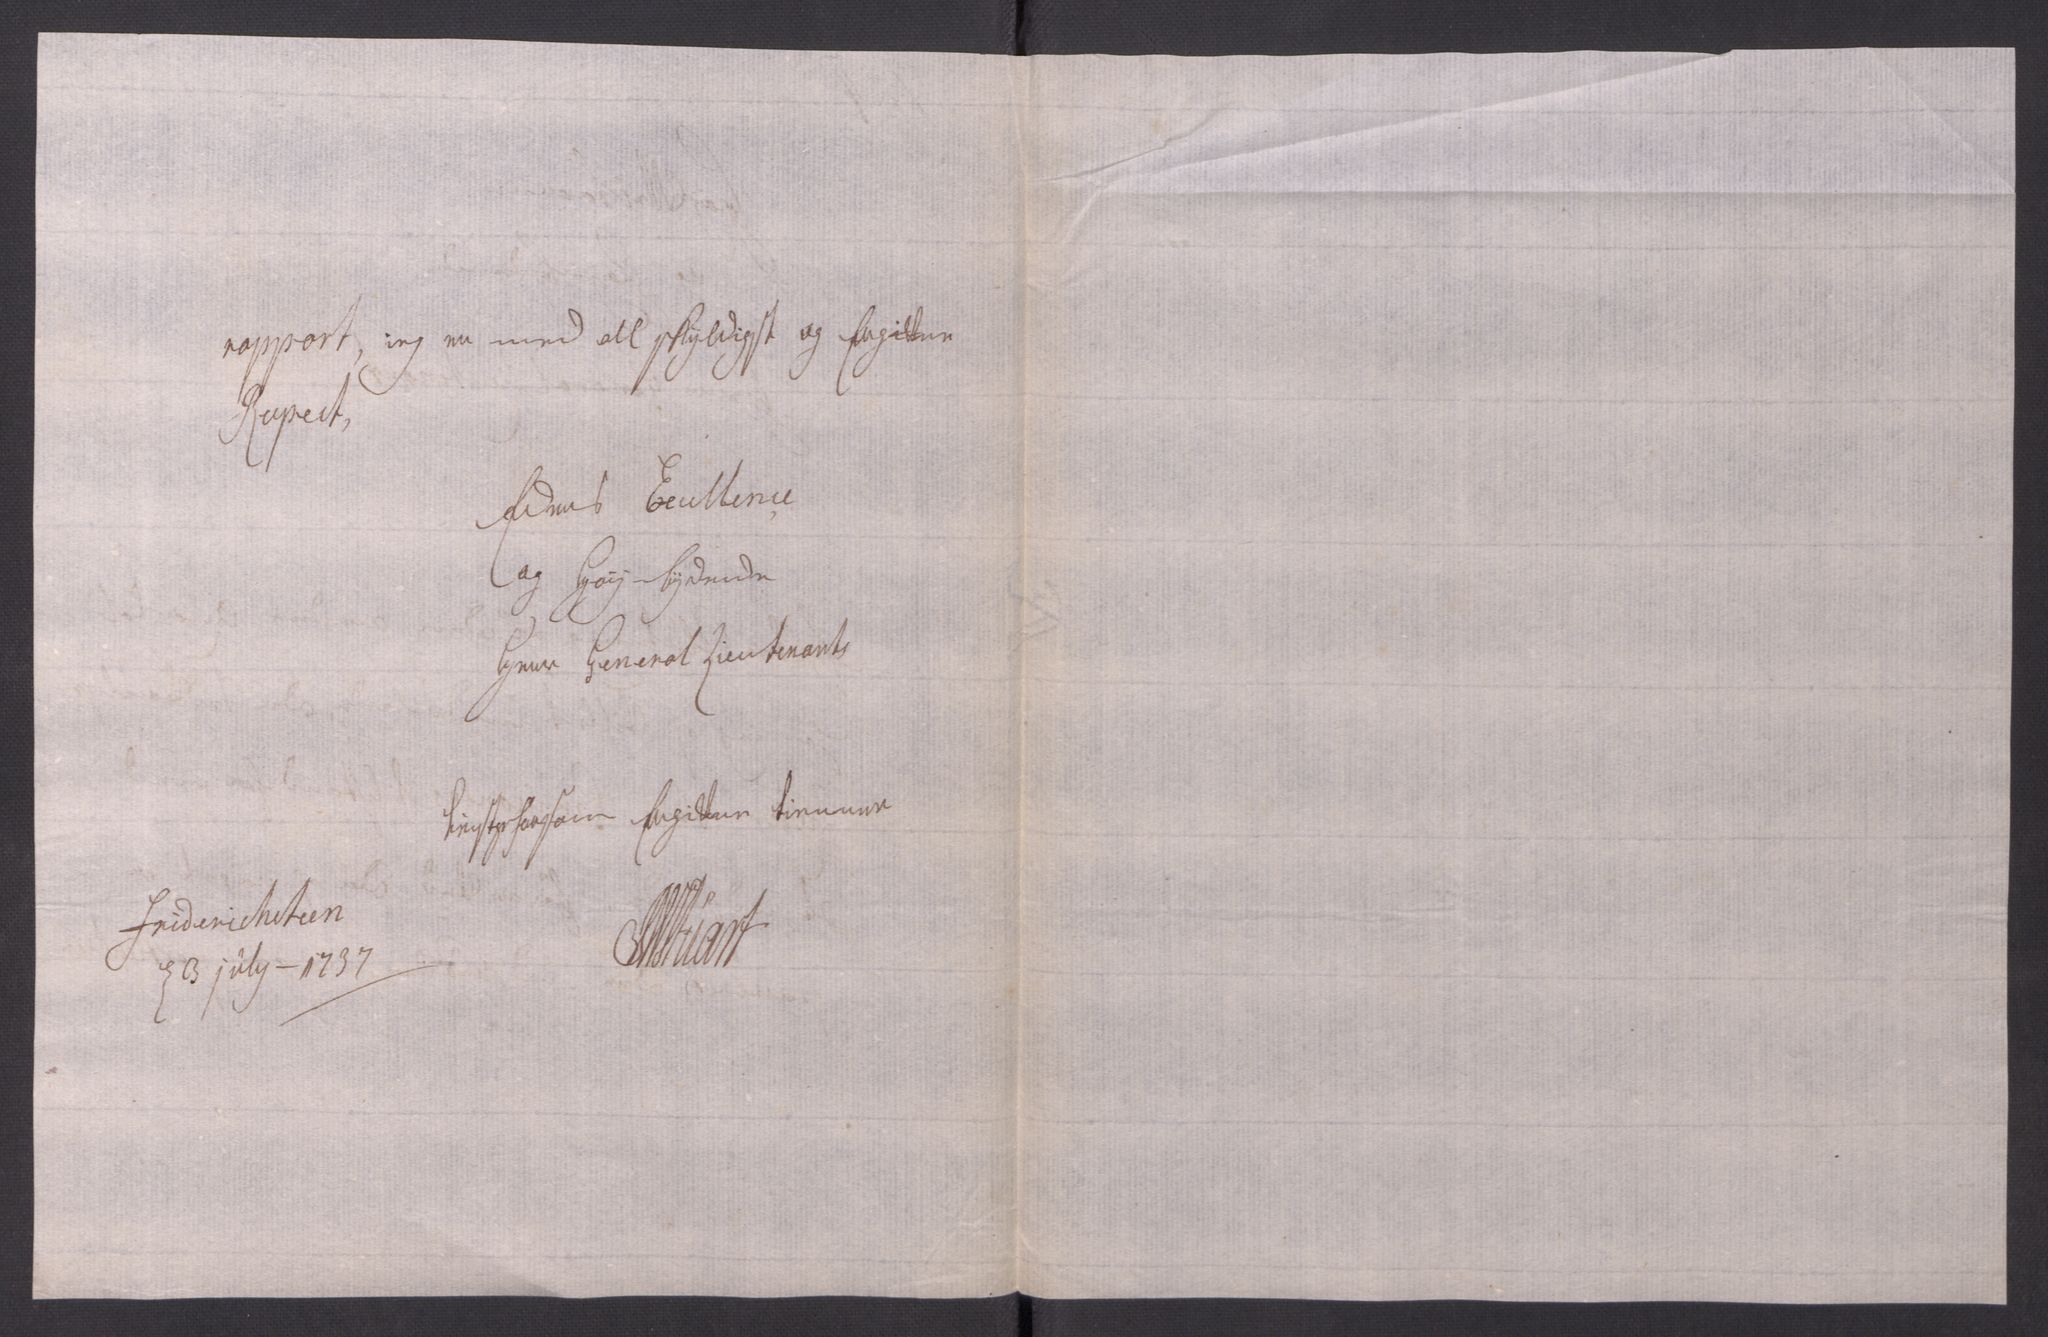 rapport, ieg er med all skyldigst og hengifven
Respect,
Eders Excellence
og Høy-bydende
Herr General Lieutenants
tienstschyldigste hengifven tienner
Stúart
Friderichsteen
d 23 júly – 1737